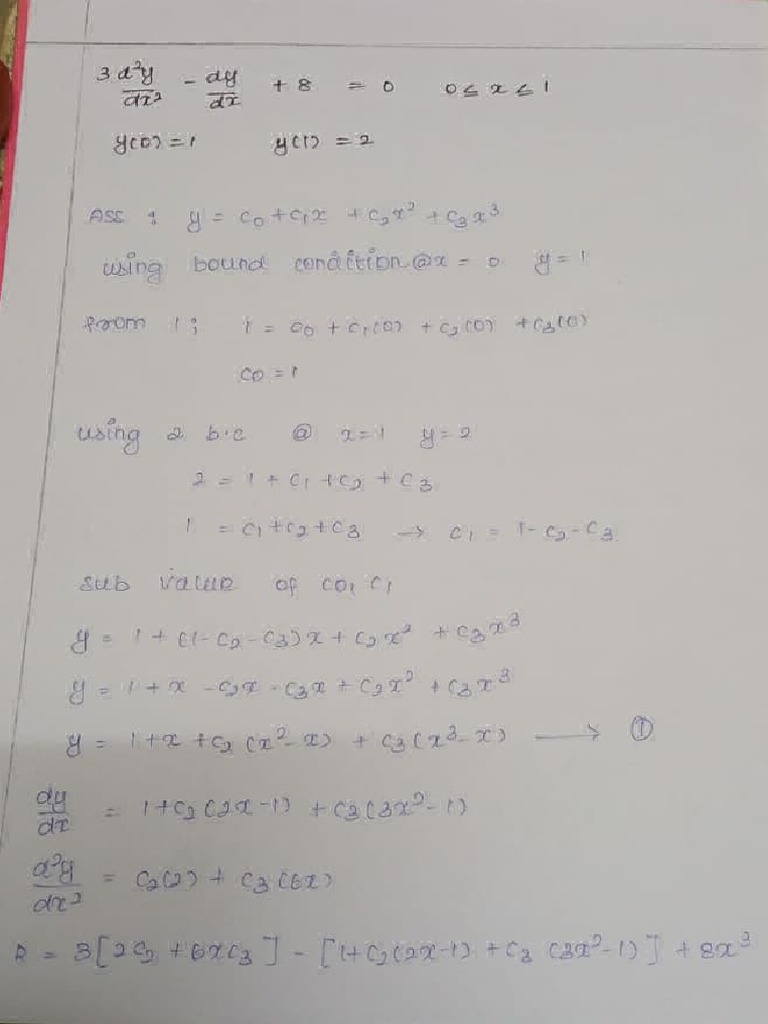 3 d²y/dx² - dy/dx + 8 = 0 0 ≤ x ≤ 1
y(0) = 1 y(1) = 2
Ass : y = c0 + c1x + c2x² + c3x³
using bound condition @ x = 0 y = 1
from 1 ; 1 = c0 + c1(0) + c2(0) + c3(0)
c0 = 1
using 2 b.c @ x = 1 y = 2
2 = 1 + c1 + c2 + c3
1 = c1 + c2 + c3 → c1 = 1 - c2 - c3
sub value of c0, c1
y = 1 + (1 - c2 - c3)x + c2x² + c3x³
y = 1 + x - c2x - c3x + c2x² + c3x³
y = 1 + x + c2(x² - x) + c3(x³ - x) → ①
dy/dx = 1 + c2(2x - 1) + c3(3x² - 1)
d²y/dx² = c2(2) + c3(6x)
R = 3[2c2 + 6xc3] - [1 + c2(2x - 1) + c3 (3x² - 1)] + 8x³